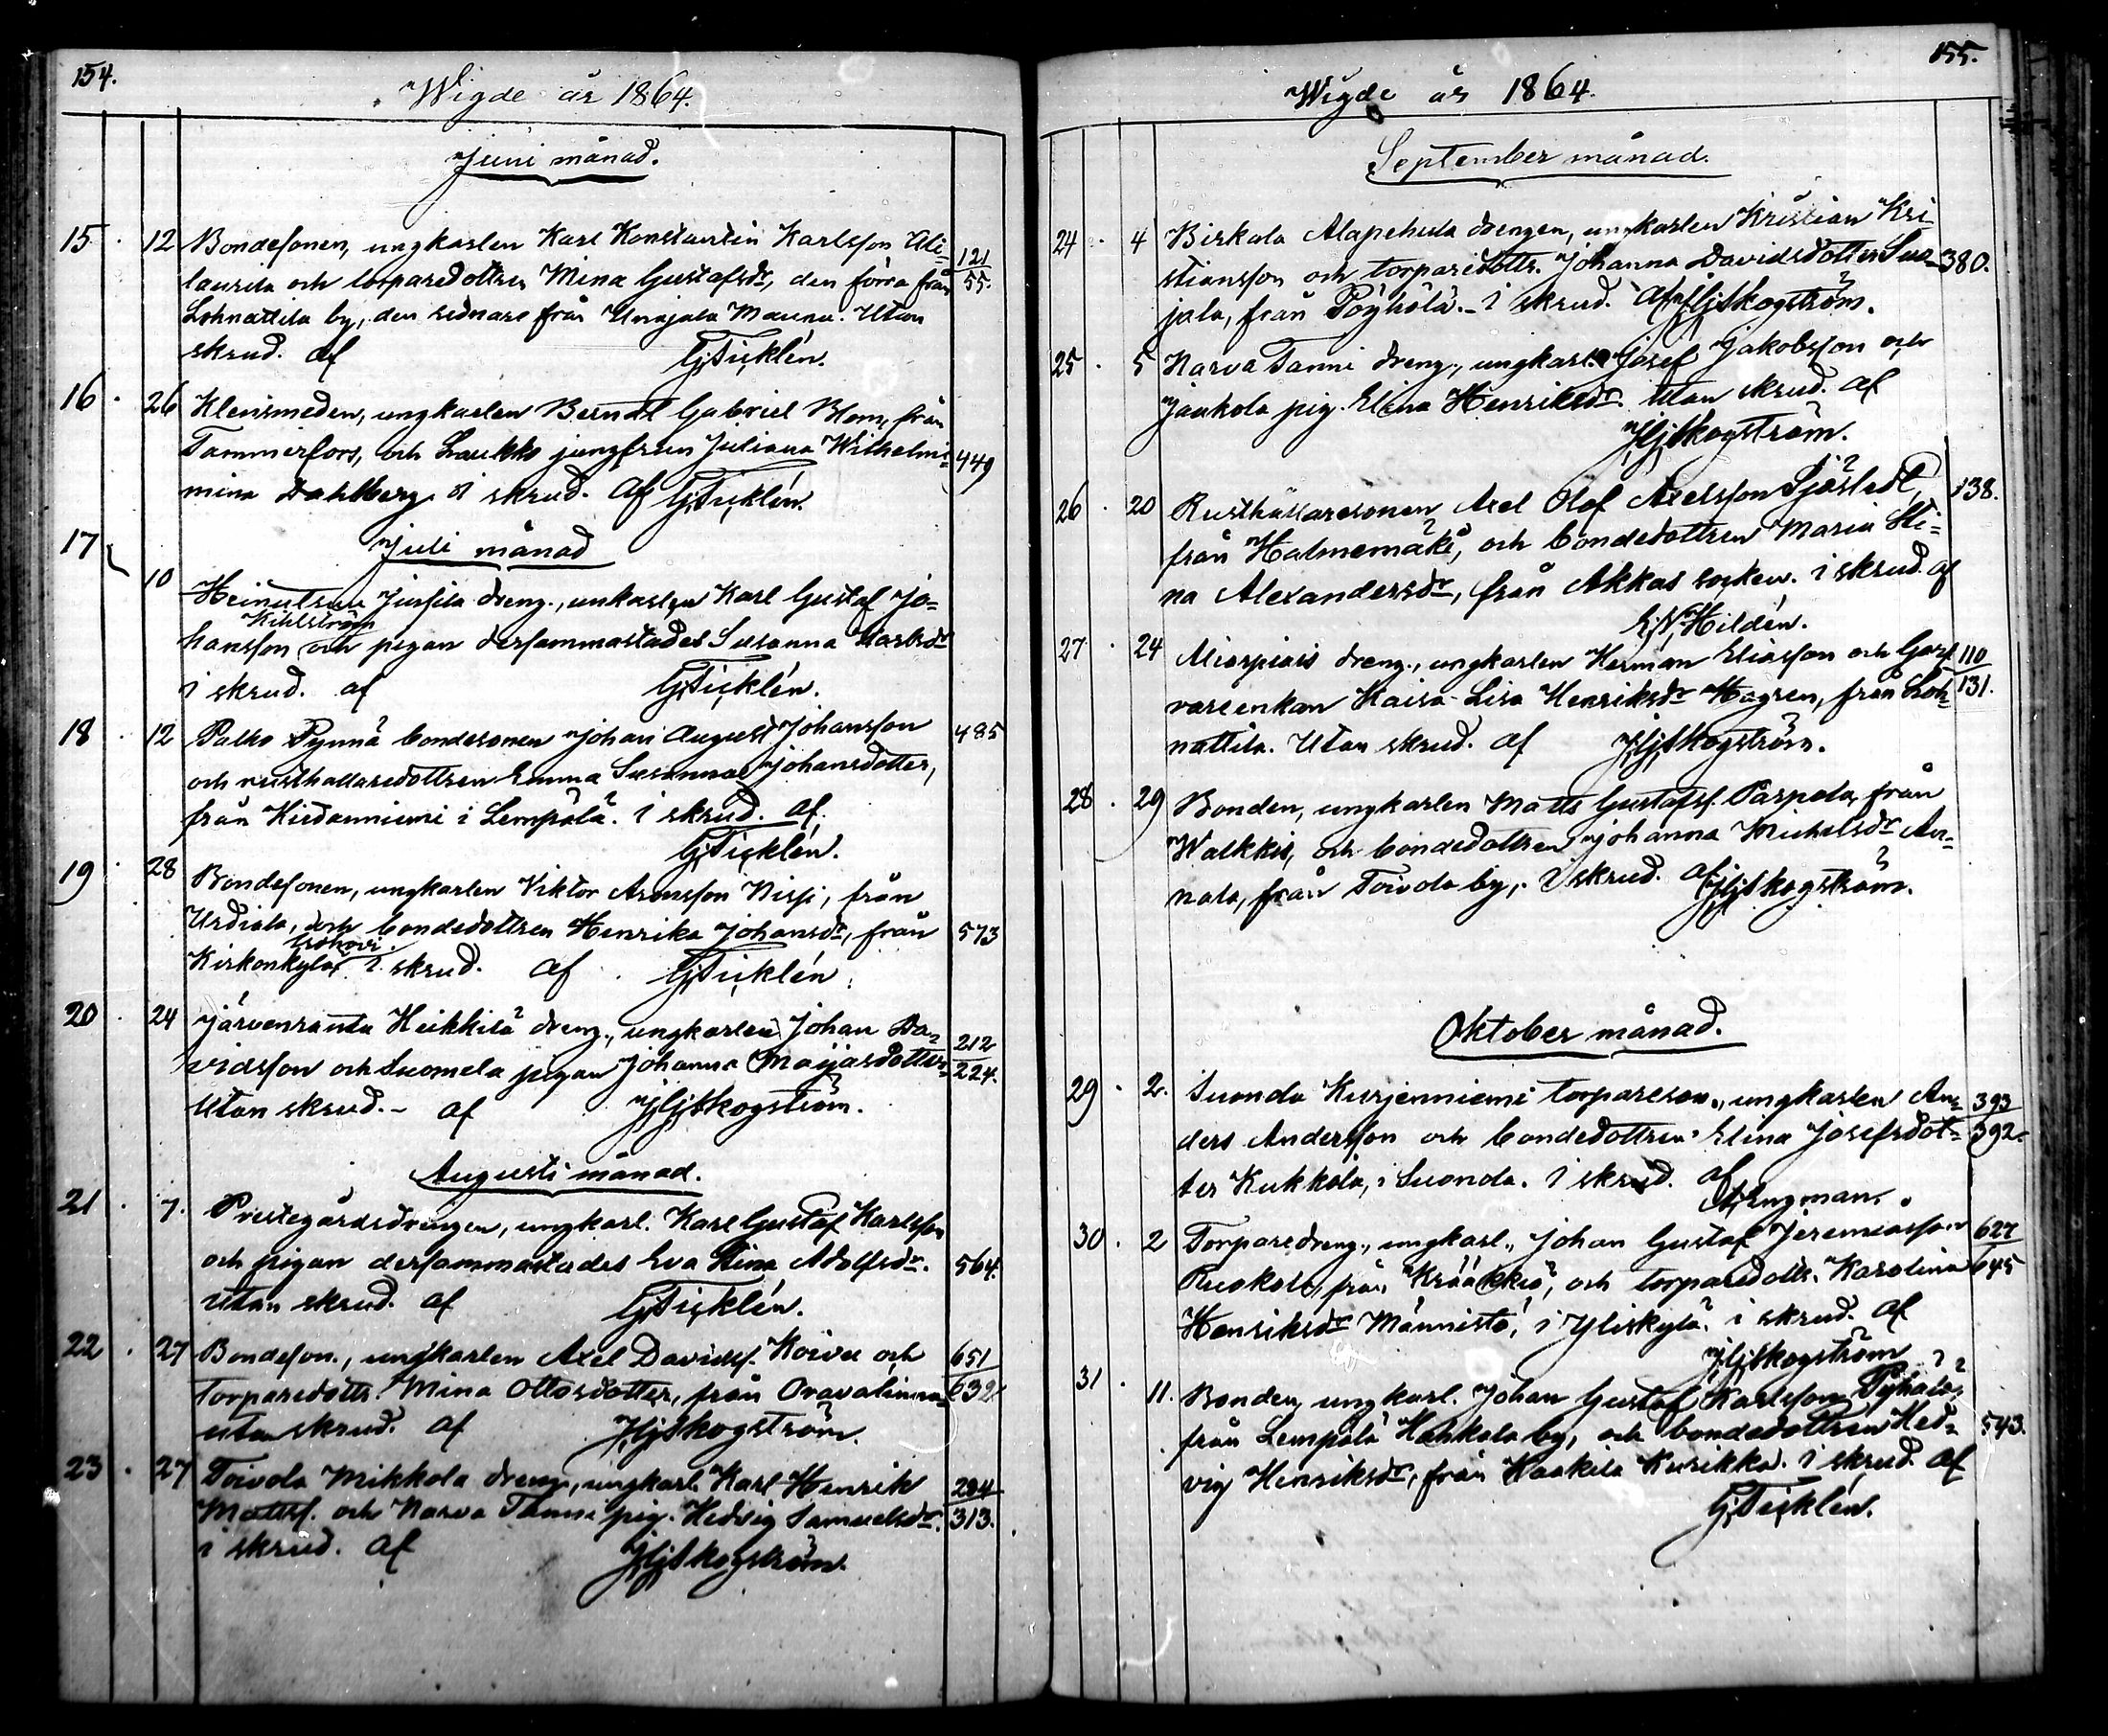 154.
Wigde år 1864.
Juni månad.
15. 12 Bondesonen, ungkarlen Karl Konstantin Karlsson Ali- 121
laurila och torparedottren Mina Gustafsdr, den förra från 55.
Lohnattila by, den sednare från Unajala Maunu. Utan
skrud. af G,Ticklén.
16. 26 Klensmeden, ungkarlen Berndt Gabriel Blom, från
Tammerfors, och Laukko jungfrun Juliana Wilhelmi- 449
mina Dahlberg i skrud. af G,Ticklén.
17 Juli månad
10 Heinulsuu Jussila dreng., unkarlen Karl Gustaf Jo-
Kihlström
hansson och pigan dersammastädes Susanna Karlsdr
i skrud. af G,Ticklén.
18. 12 Palho Pynnä bondesonen Johan August Johansson 485
och rusthallaredottren Emma Susanna Johansdotter,
från Kiedanniemi i Lempälä. i skrud. af
G,Ticklén.
19. 28 Bondesonen, ungkarlen Viktor Aronsson Nissi, från
Urdiala, och bondedottren Henrika Johansdr, från 573
Kirkonkylä i skrud. af G,Ticklén.
20. 24 Järvenranta Heikkilä dreng., ungkarlen Johan Da- 212
vidsson och Suomela pigan Johanna Maijasdotter 224.
Utan skrud. - af J,Hj,Skogström.
Augusti månad.
21. 7. Prestegårdsdrengen, ungkarl. Karl Gustaf Karlsson
och pigan dersammastädes Eva Stina Adolfsdr. 564.
utan skrud. af G,Ticklén.
22. 27 Bondeson., ungkarlen Axel Davidsf. Koivu och 651
torparedottr. Mina Ottosdotter, från Oravalinna 632.
utan skrud. af J,Hj,Skogström.
23. 27 Toivola Mikkola dreng., ungkarl. Karl Henrik 294
Mattsf. och Narva Tanni pig. Hedvig Samuelsdr. 313.
i skrud. af J,Hj,Skogström.
155.
Wigde år 1864.
September månad.
24. 4 Birkala Alapehula drengen, ungkarlen Kristian Kri-
stiansson och torparedottr. Johanna Davidsdotter Suo- 380.
jala, från Pöyhölä. - i skrud. af J,Hj,Skogström.
25. 5 Narva Tanni dreng., ungkarl. Josef Jakobsson och
Jaakola pig. Elina Henriksdr. Utan skrud. af
J,Hj,Skogström.
26. 20 Rusthållaresonen Axel Olof Axelsson Sjöstedt, 138.
från Halmemäki, och bondedottren Maria Sti-
na Alexandersdr, från Akkas socken. i skrud. af
E,N,Hildén.
27. 24 Aliorpiais dreng., ungkarlen Herman Eliasson och Garf 110
vareenkan Kaisa-Lisa Henriksdr Hagren, från Loh- 131.
nattila. Utan skrud. af J,Hj,Skogström.
28. 29 Bonden, ungkarlen Matts Gustafsf. Parpola, från
Walkkis, och bondedottren Johanna Michelsdr An-
nala, från Toivola by, i skrud. af J,Hj,Skogström.
Oktober månad.
29. 2. Suonda Kurjenniemi torpareson., ungkarlen An- 393
ders Andersson och bondedottren Elina Josefsdot- 392.
ter Kukkola, i Suonda. i skrud. af
A,Engman.
30. 2 Torparedreng., ungkarl., Johan Gustaf Jeremiasson 627
Ruokola, från Krääkkiö, och torparedottr. Karolina 645
Henriksdr Männistö, i Yliskylä. i skrud. af
J,Hj,Skogström
31. 11. Bonden, ungkarl. Johan Gustaf Karlsson Pyhälö,
från Lempälä Hahkala by, och bondedottren Hed- 543.
vig Henriksdr, från Kaakila Kurikka. i skrud. af
G,Ticklén.